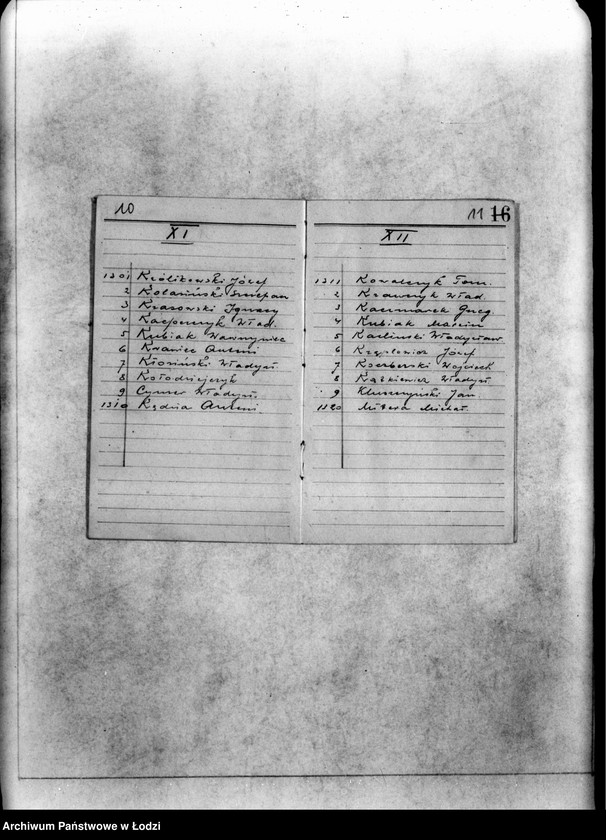 10
XI
1301 Królikowski Józef
2 Kolasiński Szczepan
3 Krasowski Ignacy
4 Kacprzyk Wład.
5 Kubiak Wawrzyniec
6 Krawiec Antoni
7 Kłosiński Władysł
8 Kołodziejczyk
9 Cymer Władysł
1310 Kędzia Antoni
11 16
XII
1311 Kowalczyk Tom.
2 Krawczyk Wład.
3 Kaczmarek Grzeg.
4 Kubiak Marcin
5 Karliński Władysław
6 Józef
7 Wojciech
8 Władysł
9 Kluszczyński Jan
1320 Mitera Michał
Archiwum Państwowe w Łodzi